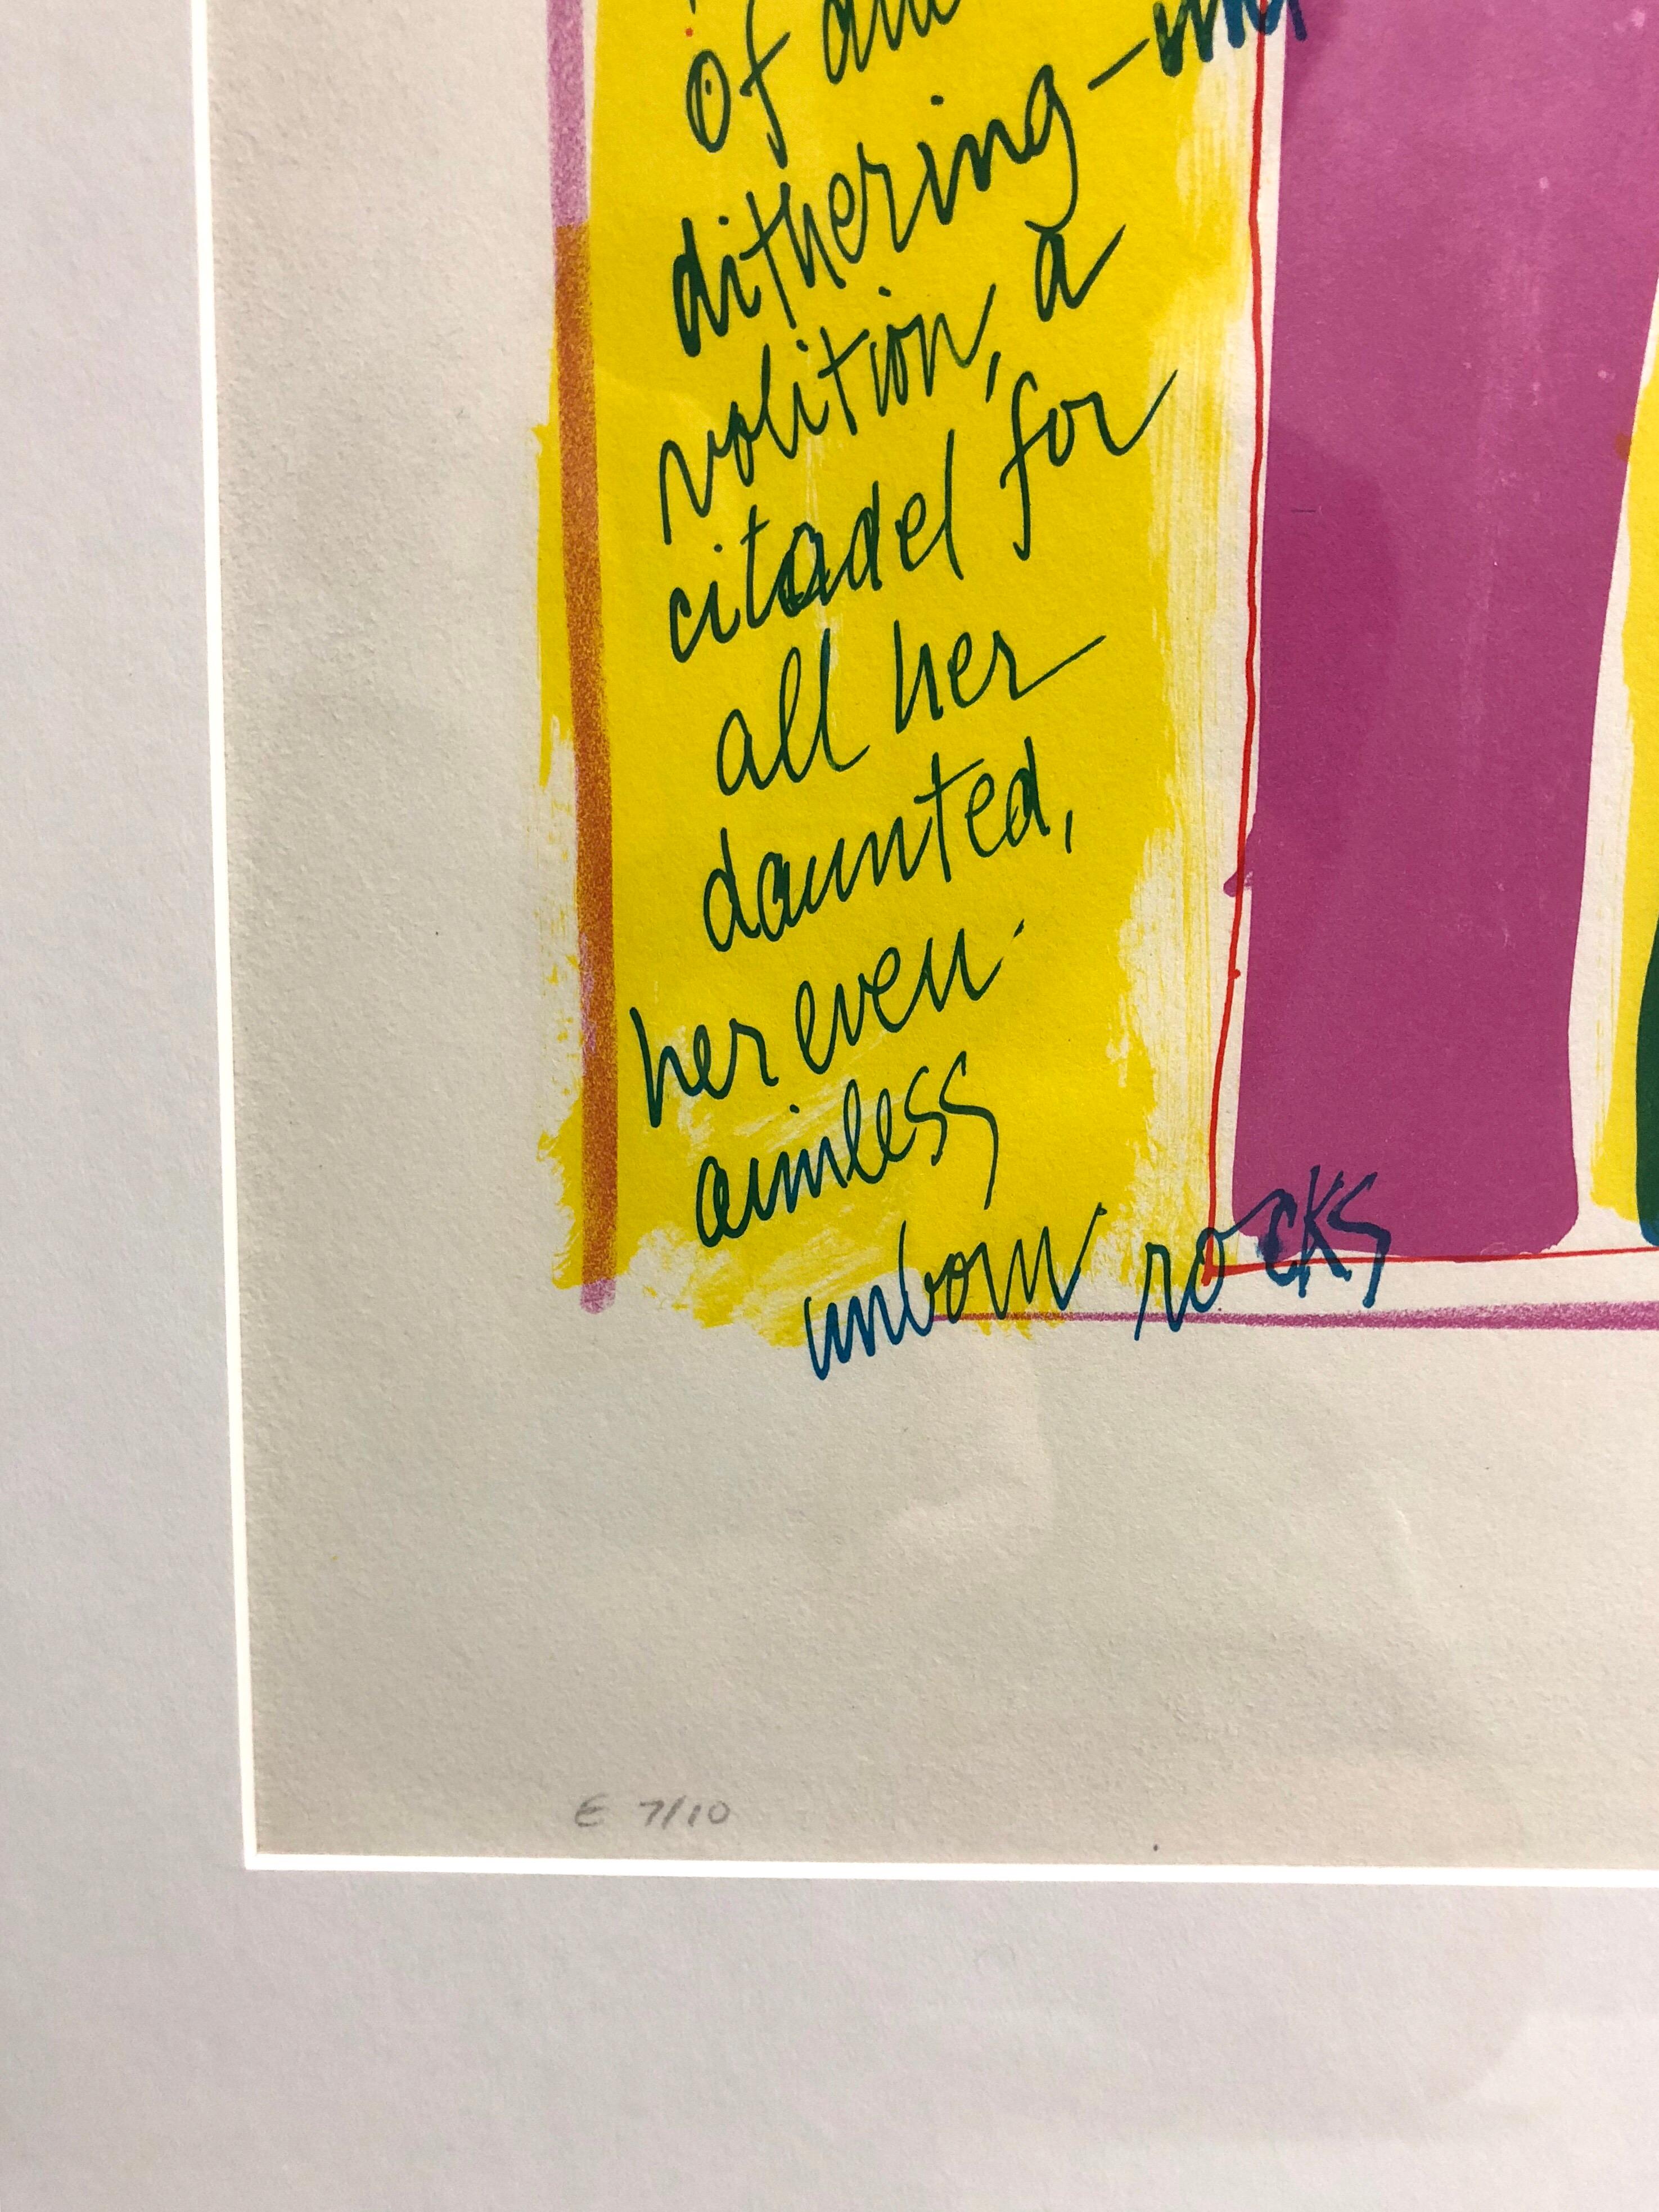 of
dithering -
volition, a
citadel for
all her
daunted,
her even
aimless
unborn rocks
E 7/10